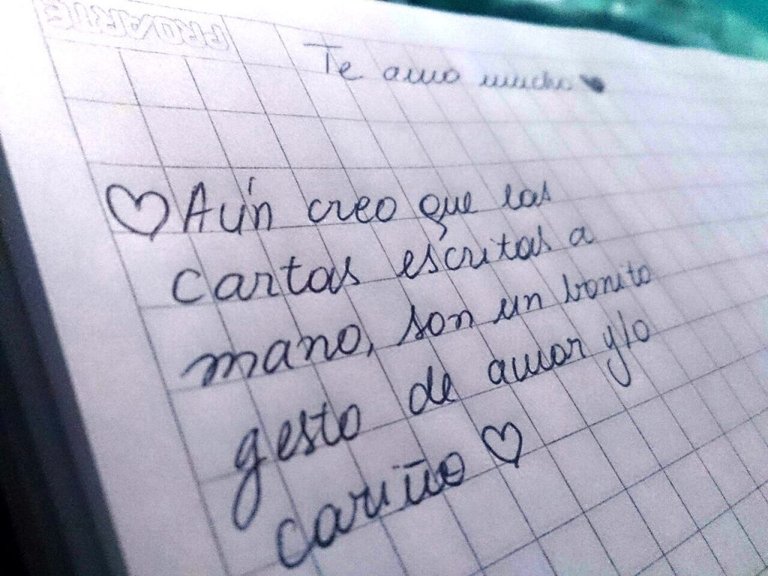 PROARTE
Te amo mucho ♥
♡ Aún creo que las
cartas escritas a
mano, son un bonito
gesto de amor y/o
cariño ♡